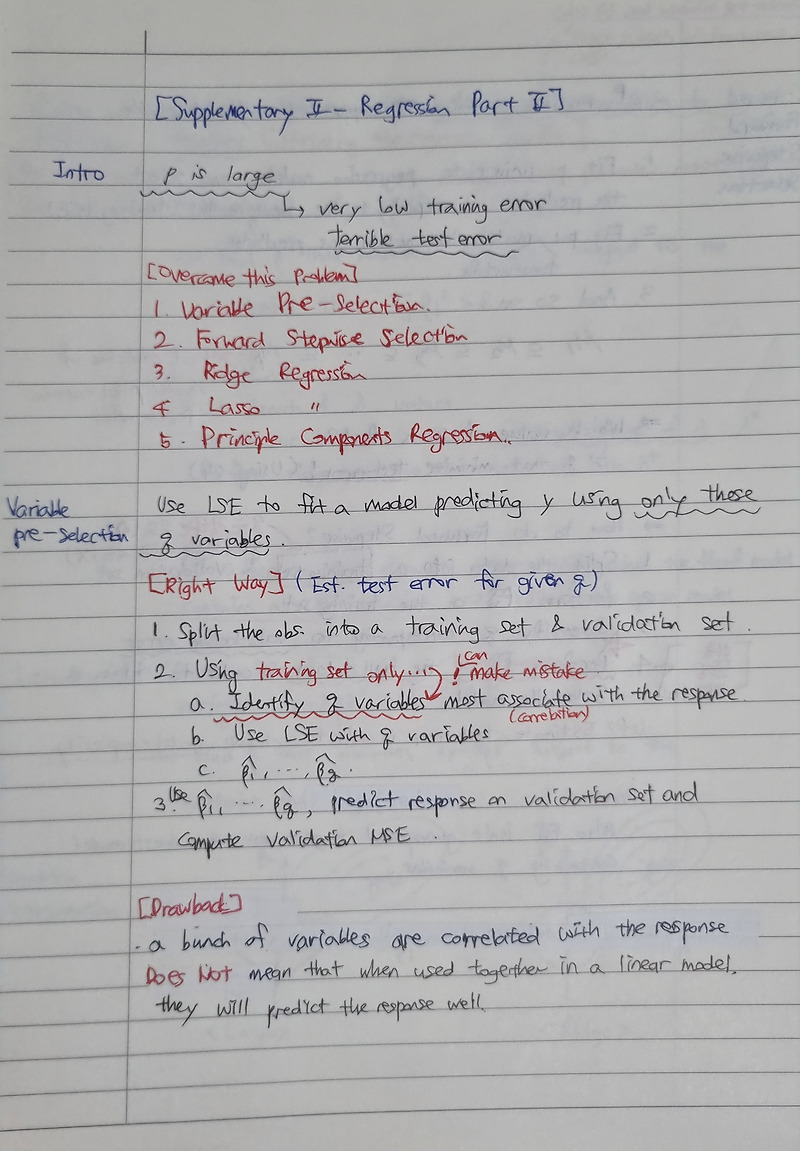 [Supplementary II - Regression Part II]
Intro p is large
↳ very low training error
terrible test error
[Overcome this Problem]
1. Variable Pre-Selection.
2. Forward Stepwise Selection
3. Ridge Regression
4 Lasso "
5. Principle Components Regression..
Variable Use LSE to fit a model predicting y using only these
pre-selection q variables.
[Right Way] (Est. test error for given q)
1. Split the obs. into a training set & validation set.
2. Using training set only... ! can make mistake
a. Identify q variables most associate with the response
(correlation)
b. Use LSE with q variables
c. β̂1, ..., β̂q.
3. Use β̂1, ... β̂q, predict response on validation set and
Compute validation MSE.
[Drawback]
- a bunch of variables are correlated with the response
Does Not mean that when used together in a linear model,
they will predict the response well.